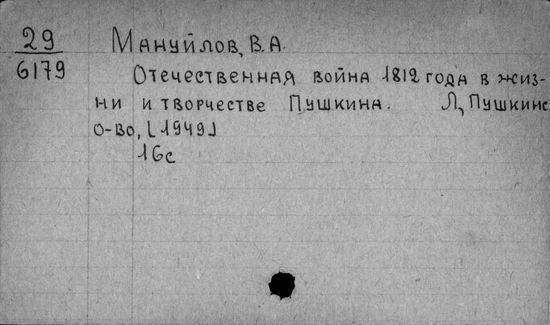 29
6179
Мануйлов, В.А.
Отечественная война 1812 года в жиз-
ни и творчестве Пушкина. Л, Пушкинс
о-во, [1949]
16с